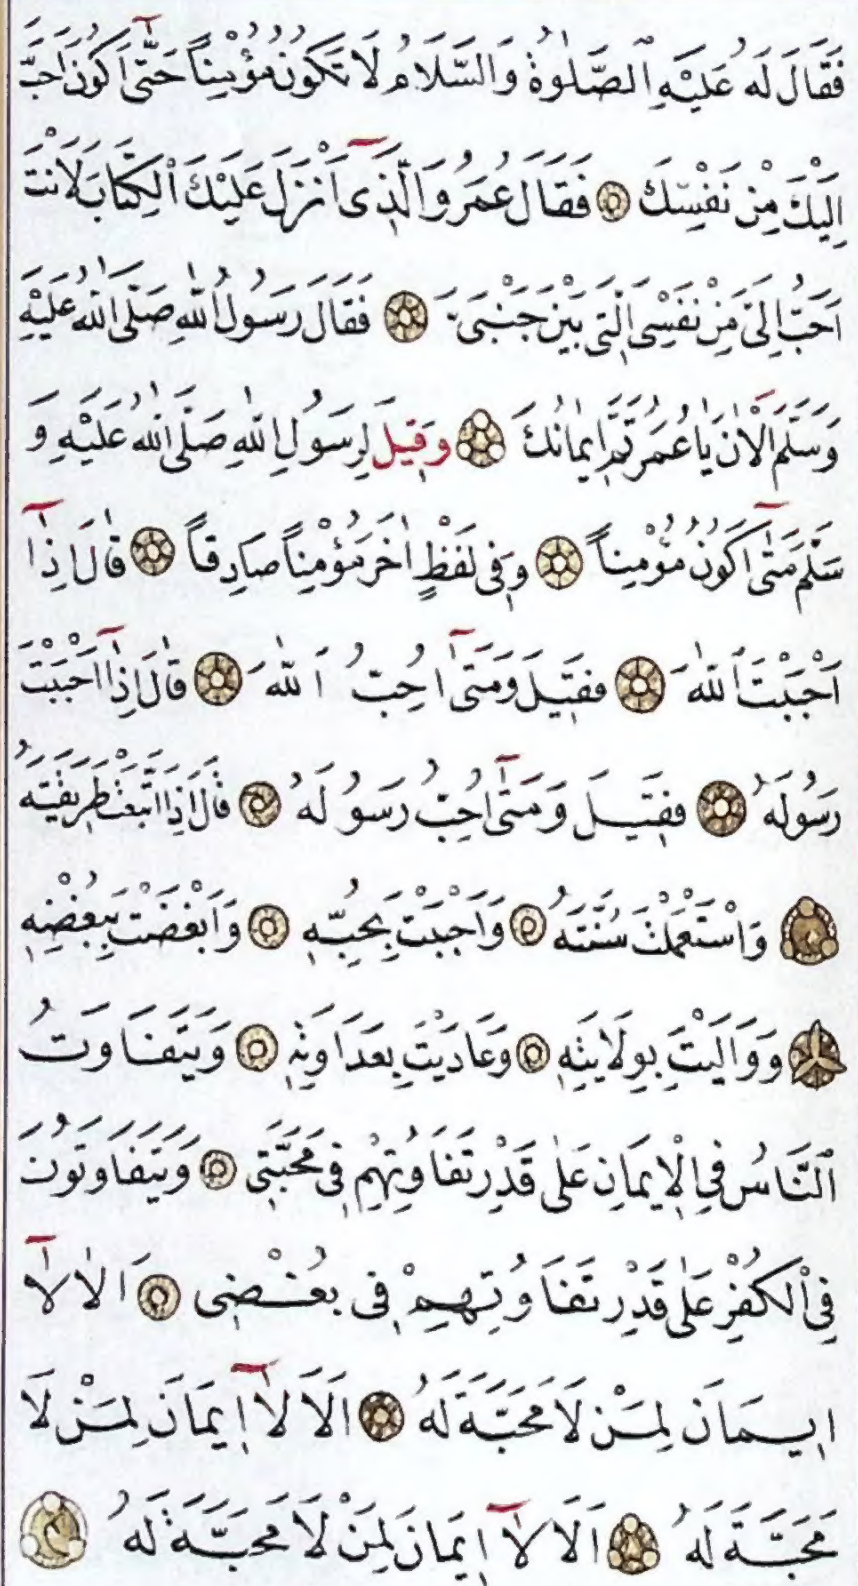 فَقَالَ لَهُ عَلَيْهِ الصَّلٰوةُ وَالسَّلَامُ لَا تَكُونُ مُؤْمِناً حَتّٰٓى اَكُونَ اَحَبَّ
اِلَيْكَ مِنْ نَفْسِكَ ۞ فَقَالَ عُمَرُ وَالَّذِىٓ اَنْزَلَ عَلَيْكَ الْكِتَابَ لَاَنْتَ
اَحَبُّ اِلَىَّ مِنْ نَفْسِى الَّتِى بَيْنَ جَنْبَىَّ ۞ فَقَالَ رَسُولُ اللّٰهِ صَلَّى اللّٰهُ عَلَيْهِ
وَسَلَّمَ اَلْاٰنَ يَا عُمَرُ تَمَّ اِيمَانُكَ ۞ وَقِيلَ لِرَسُولِ اللّٰهِ صَلَّى اللّٰهُ عَلَيْهِ وَ
سَلَّمَ مَتٰٓى اَكُونُ مُؤْمِناً ۞ وَفِى لَفْظٍ اٰخَرَ مُؤْمِناً صَادِقاً ۞ قَالَ اِذَآ
اَحْبَبْتَ اللّٰهَ ۞ فَقِيلَ وَمَتٰٓى اُحِبُّ اللّٰهَ ۞ قَالَ اِذَآ اَحْبَبْتَ
رَسُولَهُ ۞ فَقِيلَ وَمَتٰٓى اُحِبُّ رَسُولَهُ ۞ قَالَ اِذَا اتَّبَعْتَ طَرِيقَتَهُ
۞ وَاسْتَعْمَلْتَ سُنَّتَهُ ۞ وَاَحْبَبْتَ بِحُبِّهِ ۞ وَاَبْغَضْتَ بِبُغْضِهِ
۞ وَوَالَيْتَ بِوِلَايَتِهِ ۞ وَعَادَيْتَ بِعَدَاوَتِهِ ۞ وَيَتَفَاوَتُ
النَّاسُ فِى الْاِيمَانِ عَلٰى قَدْرِ تَفَاوُتِهِمْ فِى مَحَبَّتِى ۞ وَيَتَفَاوَتُونَ
فِى الْكُفْرِ عَلٰى قَدْرِ تَفَاوُتِهِمْ فِى بُغْضِى ۞ اَلَا لَآ
اِيمَانَ لِمَنْ لَا مَحَبَّةَ لَهُ ۞ اَلَا لَآ اِيمَانَ لِمَنْ لَا
مَحَبَّةَ لَهُ ۞ اَلَا لَآ اِيمَانَ لِمَنْ لَا مَحَبَّةَ لَهُ ۞